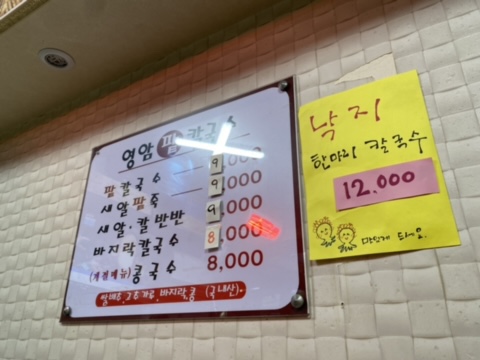 영암 팥 칼국수
팥칼국수 9,000
새알팥죽 9,000
새알·칼 반반 9,000
바지락칼국수 8,000
(계절메뉴) 콩국수 8,000
쌀, 배추, 고추가루, 바지락, 콩 (국내산).
낙지
한마리 칼국수
12.000
맛있게 드세요.